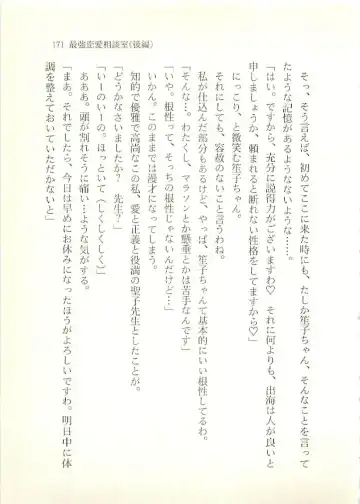 171 最強恋愛相談室(後編)
そっ、そう言えば、初めてここに来た時にも、たしか笙子ちゃん、そんなことを言って
たような記憶があるようなないような……。
「はい。ですから、充分に説得力がございますわ♡ それに何よりも、出海は人が良いと
申しましょうか、頼まれると断れない性格をしてますから♡」
にっこり、と微笑む笙子ちゃん。
それにしても、容赦のないこと言うわね。
私が仕込んだ部分もあるけど、やっぱ、笙子ちゃんて基本的にいい根性してるわ。
「そんな…。わたくし、マラソンとか懸垂とかは苦手なんです」
「いや。根性って、そっちの根性じゃないんだけど…」
いかん。このままでは漫才になってしまう。
知的で優雅で高尚なこの私、愛と正義と役満の聖子先生としたことが。
「どうかなさいましたか? 先生?」
「いーのいーの。ほっといて(しくしくしく)」
あああ。頭が割れそうに痛い…ような気がする。
「まあ。それでしたら、今日は早めにお休みになったほうがよろしいですわ。明日中に体
調を整えておいていただかないと」